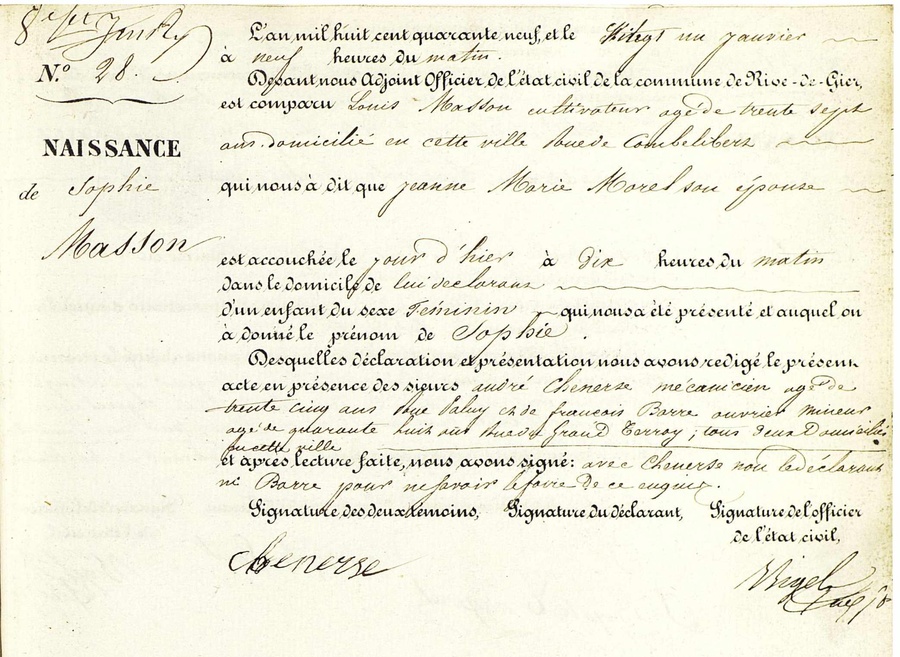 N.º 28.
NAISSANCE
de Sophie
Masson
L'an mil huit cent quarante neuf, et le Vingt un janvier
à neuf heures du matin.
Devant nous Adjoint Officier de l'état civil de la commune de Rive-de-Gier,
est comparu Louis Masson cultivateur agé de trente sept
ans domicilié en cette ville Rue de Combelibert
qui nous à dit que Jeanne Marie Morel son épouse
est accouchée, le jour d'hier à Dix heures, du matin
dans le domicile de lui declarant
d'un enfant du sexe Féminin qui nous a été présenté, et auquel on
à donné, le prénom de Sophie.
Desquelles déclaration et présentation nous avons redigé, le présent
acte, en présence des sieurs andré Chenerse mécanicien agé de
trente cinq ans Rue Paluy et de françois Barre ouvrier mineur
agé de quarante huit ans Rue du Grand Terray ; tous deux Domiciliés
en cette ville
et après lecture faite, nous avons signé: avec Chenerse non le déclarant
ni Barre pour ne savoir le faire de ce enquis.
Signature des deux témoins, Signature du déclarant, Signature de l'officier
de l'état civil,
Chenerse